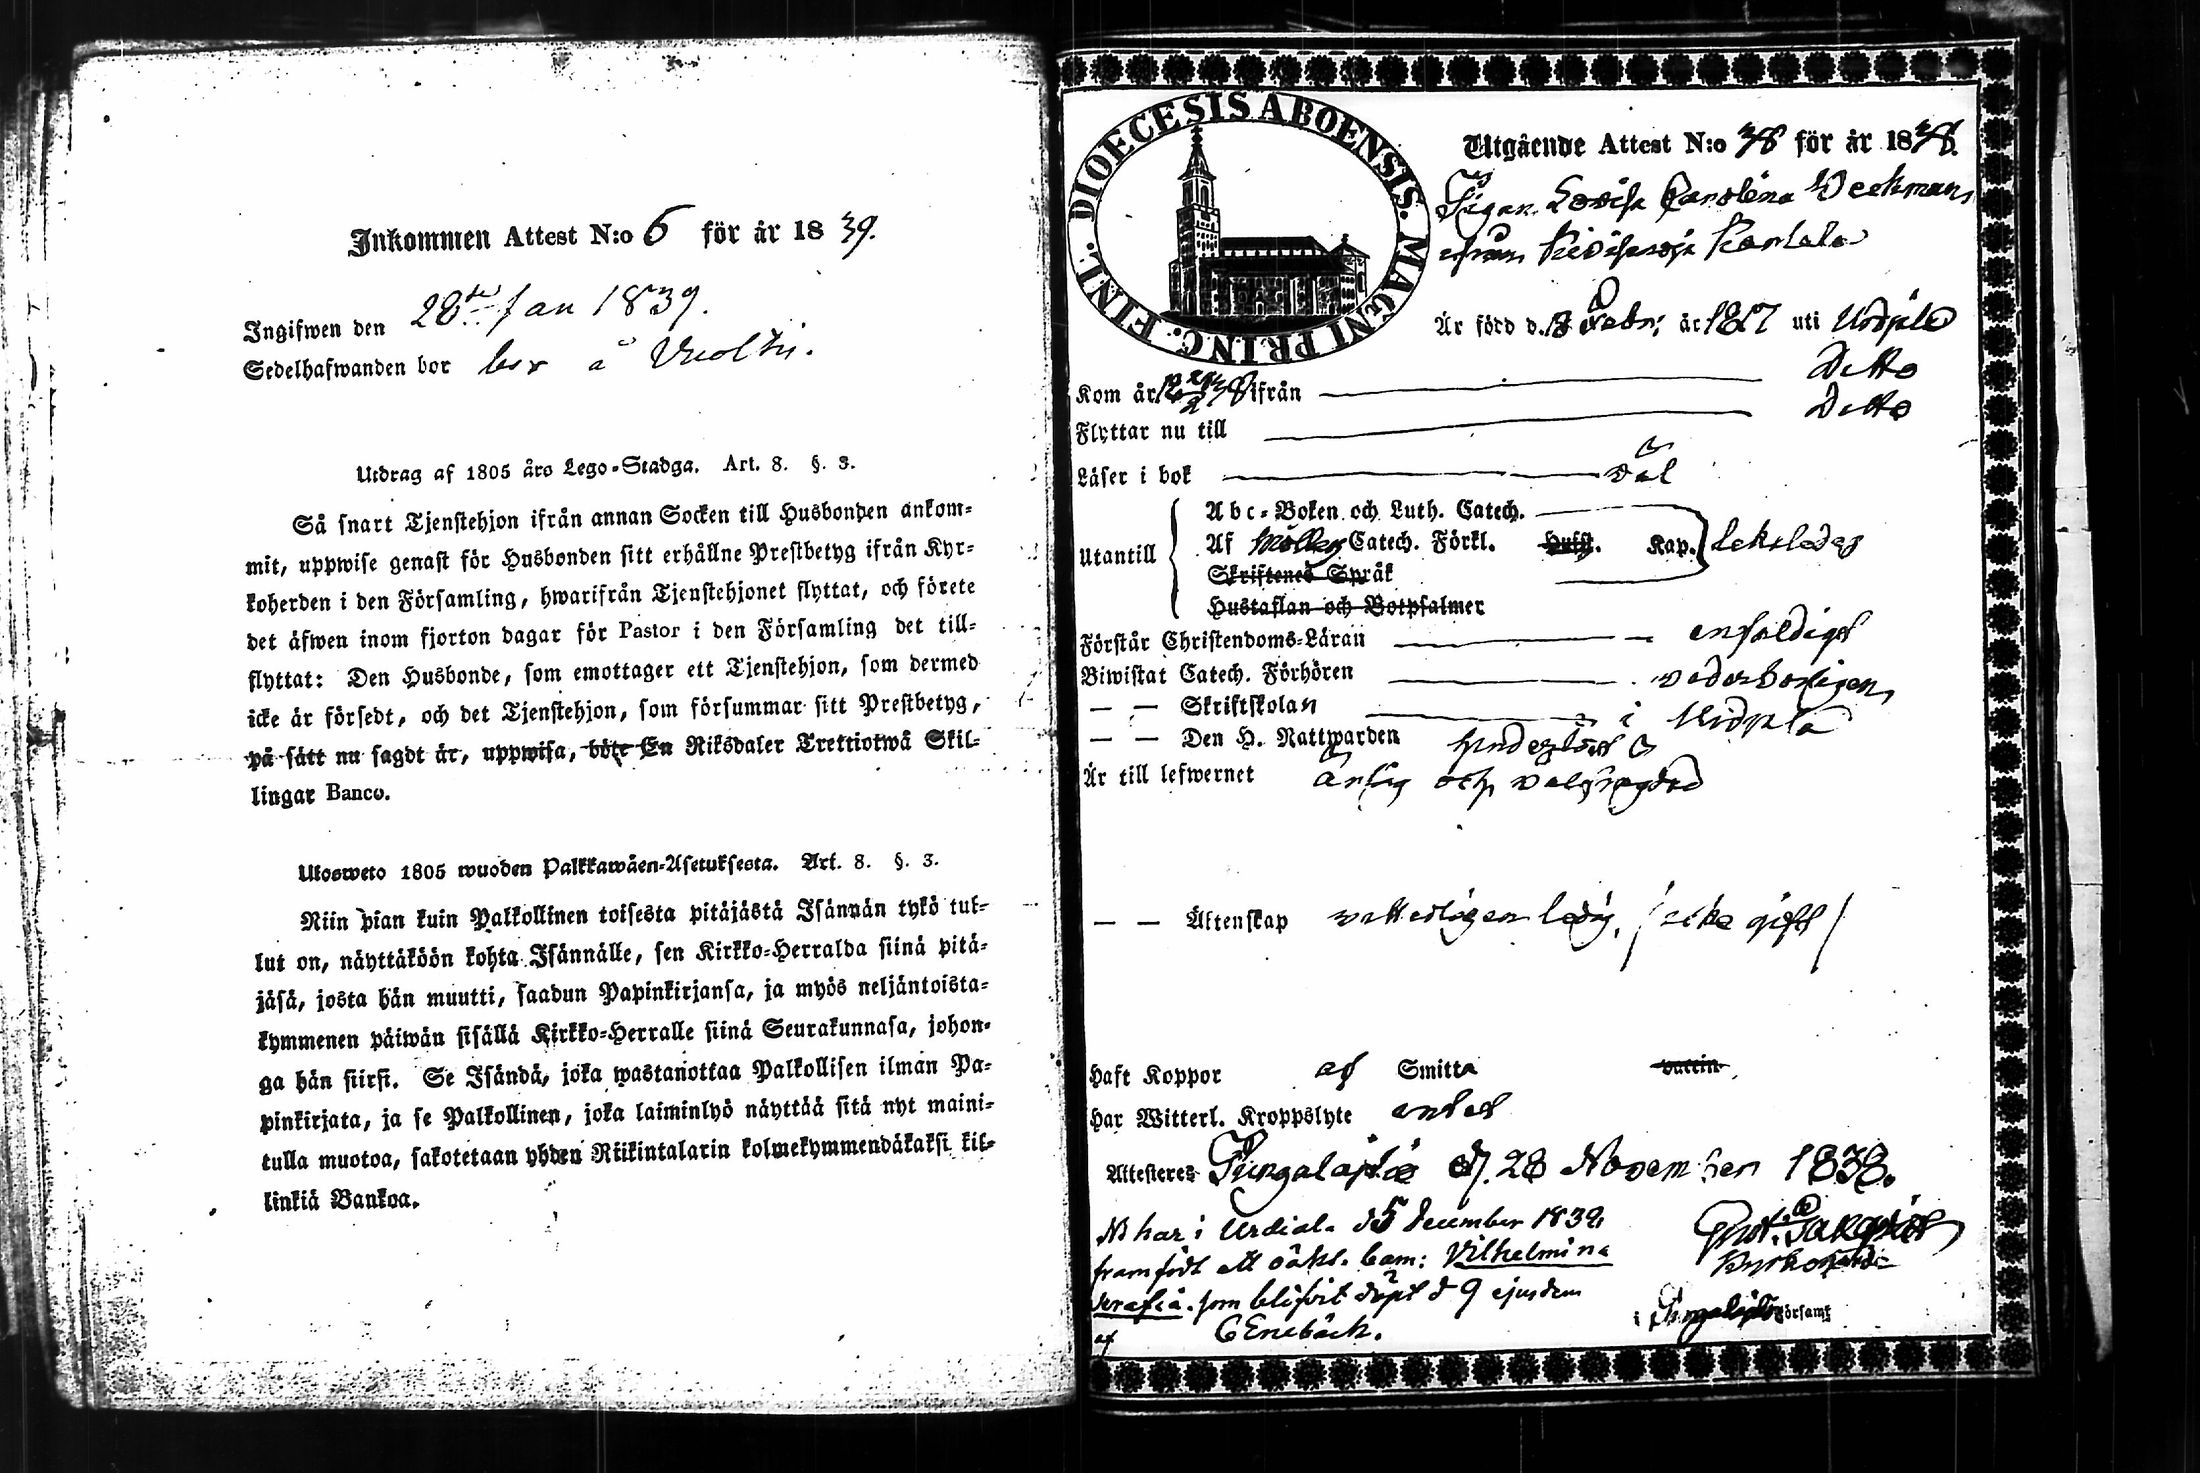 Inkommen Attest N:o 6 för år 1839.
Ingifwen den 28de Jan 1839.
Sedelhafwanden bor bor å Vuolzi.
Utdrag af 1805 års Lego-Stadga. Art. 8. §. 3.
Så snart Tjenstehjon ifrån annan Socken till Husbonden ankom-
mit, uppwise genast för Husbonden sitt erhållne Prestbetyg ifrån Kyr-
koherden i den Församling, hwarifrån Tjenstehjonet flyttat, och förete
det äfwen inom fjorton dagar för Pastor i den Församling det till-
flyttat: Den Husbonde, som emottager ett Tjenstehjon, som dermed
icke är försedt, och det Tjenstehjon, som försummar sitt Prestbetyg,
på sätt nu sagdt är, uppwisa, böte En Riksdaler Trettiotwå Skil-
lingar Banco.
Utosweto 1805 wuoden Palkkawäen-Asetuksesta. Art. 8. §. 3.
Niin pian kuin Palkollinen toisesta pitäjästä Isännän tykö tul-
lut on, näyttäköön kohta Isännälle, sen Kirkko-Herralda siinä pitä-
jäsä, josta hän muutti, saadun Papinkirjansa, ja myös neljäntoista-
kymmenen päiwän sisällä Kirkko-Herralle siinä Seurakunnasa, johon-
ga hän siirsi. Se Isändä, joka wastanottaa Palkollisen ilman Pa-
pinkirjata, ja se Palkollinen, joka laiminlyö näyttää sitä nyt maini-
tulla muotoa, sakotetaan yhden Riikintalarin kolmekymmendäkaksi kil-
linkiä Bankoa.
DIOECESIS ABOENSIS. MAGNI PRINC. FINL.
Utgående Attest N:o 38 för år 1838.
Pigan Lovisa Carolina Weckman
ifrån
Är född d. 13 Febr: år 1817 uti Urdiala
Kom år ifrån Ditto
Flyttar nu till Ditto
Läser i bok väl
Utantill
Abc-Boken och Luth. Catech.
Af Möllers Catech. Förkl. Hufst. Kap.
Skriftenes Språk
Hustaflan och Botpsalmer
Förstår Christendoms-Läran enfaldigt
Biwistat Catech. Förhören vederbörligen
— — Skriftskolan i Urdiala
— — Den H. Nattwarden
Är till lefwernet ärlig och välfrägdad
— — Äktenskap vitterligen ledig, /icke gift/
Haft Koppor af Smitta vaccin
Har Witterl. Kroppslyte intet
Attesteres Pungalaitio d. 28 November 1838.
NB har i Urdiala d 5 december 1838
framfödt ett oäkt. barn: Vilhelmina
Serafia. som blifvit döpt d 9 ejusdem
af C Enebäck.
Kyrkoherde
i Församl